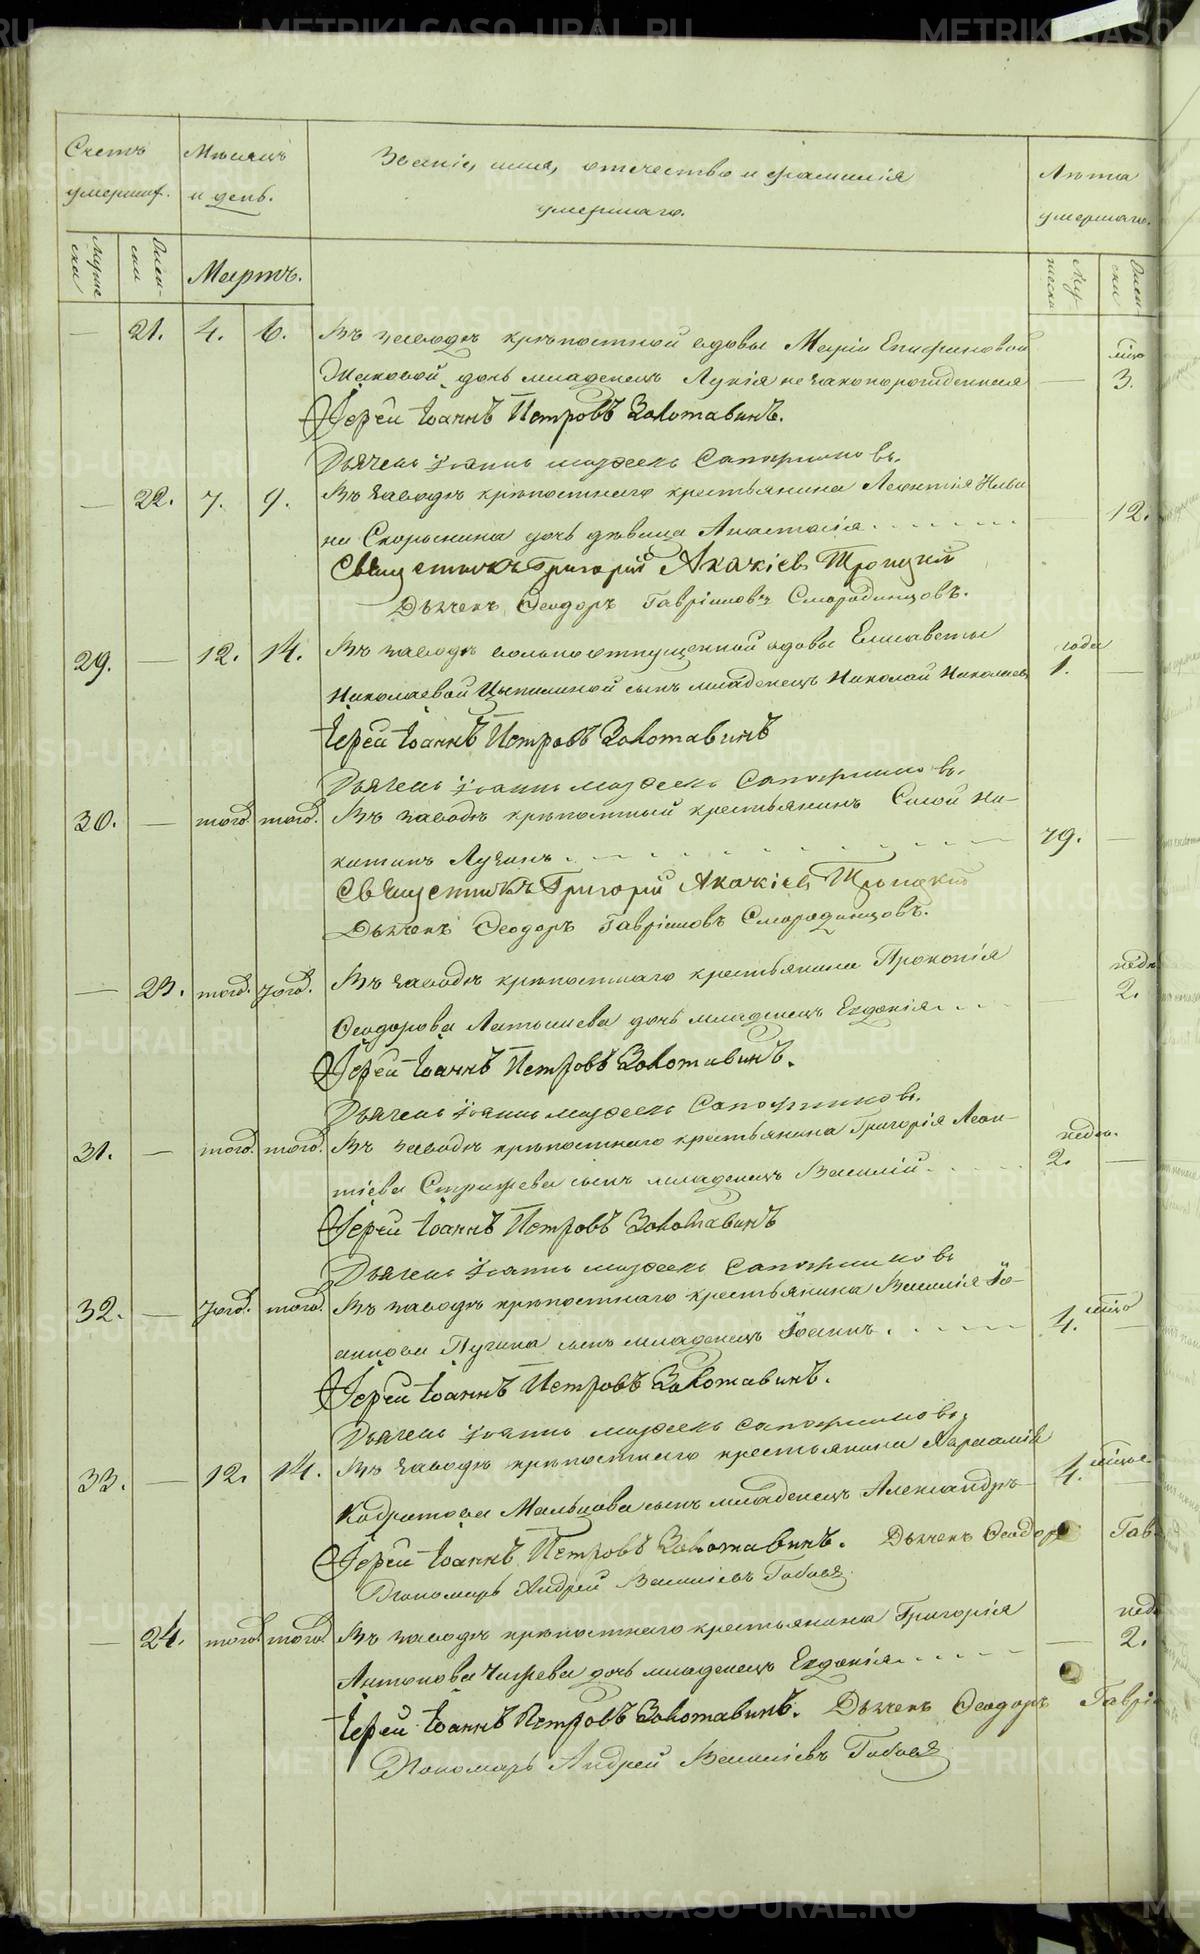 Счетъ умершихъ.
Мѣсяцъ и день.
Званіе, имя, отчество и фамилія умершаго.
Лѣта умершаго.
Мужеска
Женска
Мартъ.
Мужеска
Женска
— 21. 4. 6. Въ заводѣ крѣпостной вдовы Маріи Епифановой
дочь младенецъ Лукія незаконорожденная — 3.
Іерей Іоаннъ Петровъ Золотавинъ.
Дьячекъ Іоаннъ Сапожниковъ.
— 22. 7. 9. Въ заводѣ крѣпостнаго крестьянина Леонтія Ильи
на Скорынина дочь дѣвица Анастасія — 12.
Священникъ Григорій Акакіевъ Троицкій
Дьячекъ Ѳеодоръ Гавріиловъ Смородинцовъ.
29. — 12. 14. Въ заводѣ вольноотпущенной вдовы Елисаветы
Николаевой Цыпилиной сынъ младенецъ Николай Николаевъ
года 1. —
Іерей Іоаннъ Петровъ Золотавинъ
Дьячекъ Іоаннъ Сапожниковъ.
30. — того. того. Въ заводѣ крѣпостный крестьянинъ Сысой Ни-
китинъ Лузинъ 79. —
Священникъ Григорій Акакіевъ Троицкій
Дьячекъ Ѳеодоръ Гавріиловъ Смородинцовъ.
— 23. того. того. Въ заводѣ крѣпостнаго крестьянина Прокопія
Ѳеодорова Латышева дочь младенецъ Евдокія 2.
Іерей Іоаннъ Петровъ Золотавинъ.
Дьячекъ Іоаннъ Сапожниковъ.
31. — того. того. Въ заводѣ крѣпостнаго крестьянина Григорія Леон-
тіева сынъ младенецъ Василій недѣ. 2. —
Іерей Іоаннъ Петровъ Золотавинъ
Дьячекъ Іоаннъ Сапожниковъ
32. — того. того. Въ заводѣ крѣпостнаго крестьянина Василія Іо-
аннова Пугина сынъ младенецъ Іоаннъ. 4. —
Іерей Іоаннъ Петровъ Золотавинъ.
Дьячекъ Іоаннъ Сапожниковъ.
33. — 12. 14. Въ заводѣ крѣпостнаго крестьянина Варлаамія
Кодратова Мальцова сынъ младенецъ Александръ 4.
Іерей Іоаннъ Петровъ Золотавинъ. Дьячекъ Ѳеодоръ Гав
Пономарь Андрей Василіевъ
— 24. того. того. Въ заводѣ крѣпостнаго крестьянина Григорія
Антонова дочь младенецъ Евдокія — 2.
Іерей Іоаннъ Петровъ Золотавинъ. Дьячекъ Ѳеодоръ Гаврі
Пономарь Андрей Василіевъ
METRIKI.GASO-URAL.RU